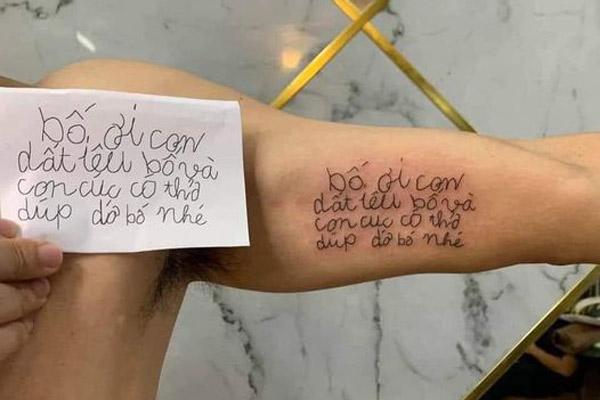 bố ơi con
dất lệu bố và
con cưc có thở
dúp dỡ bố nhé
bố ơi con
dất lệu bố và
con cưc có thở
dúp dỡ bố nhé